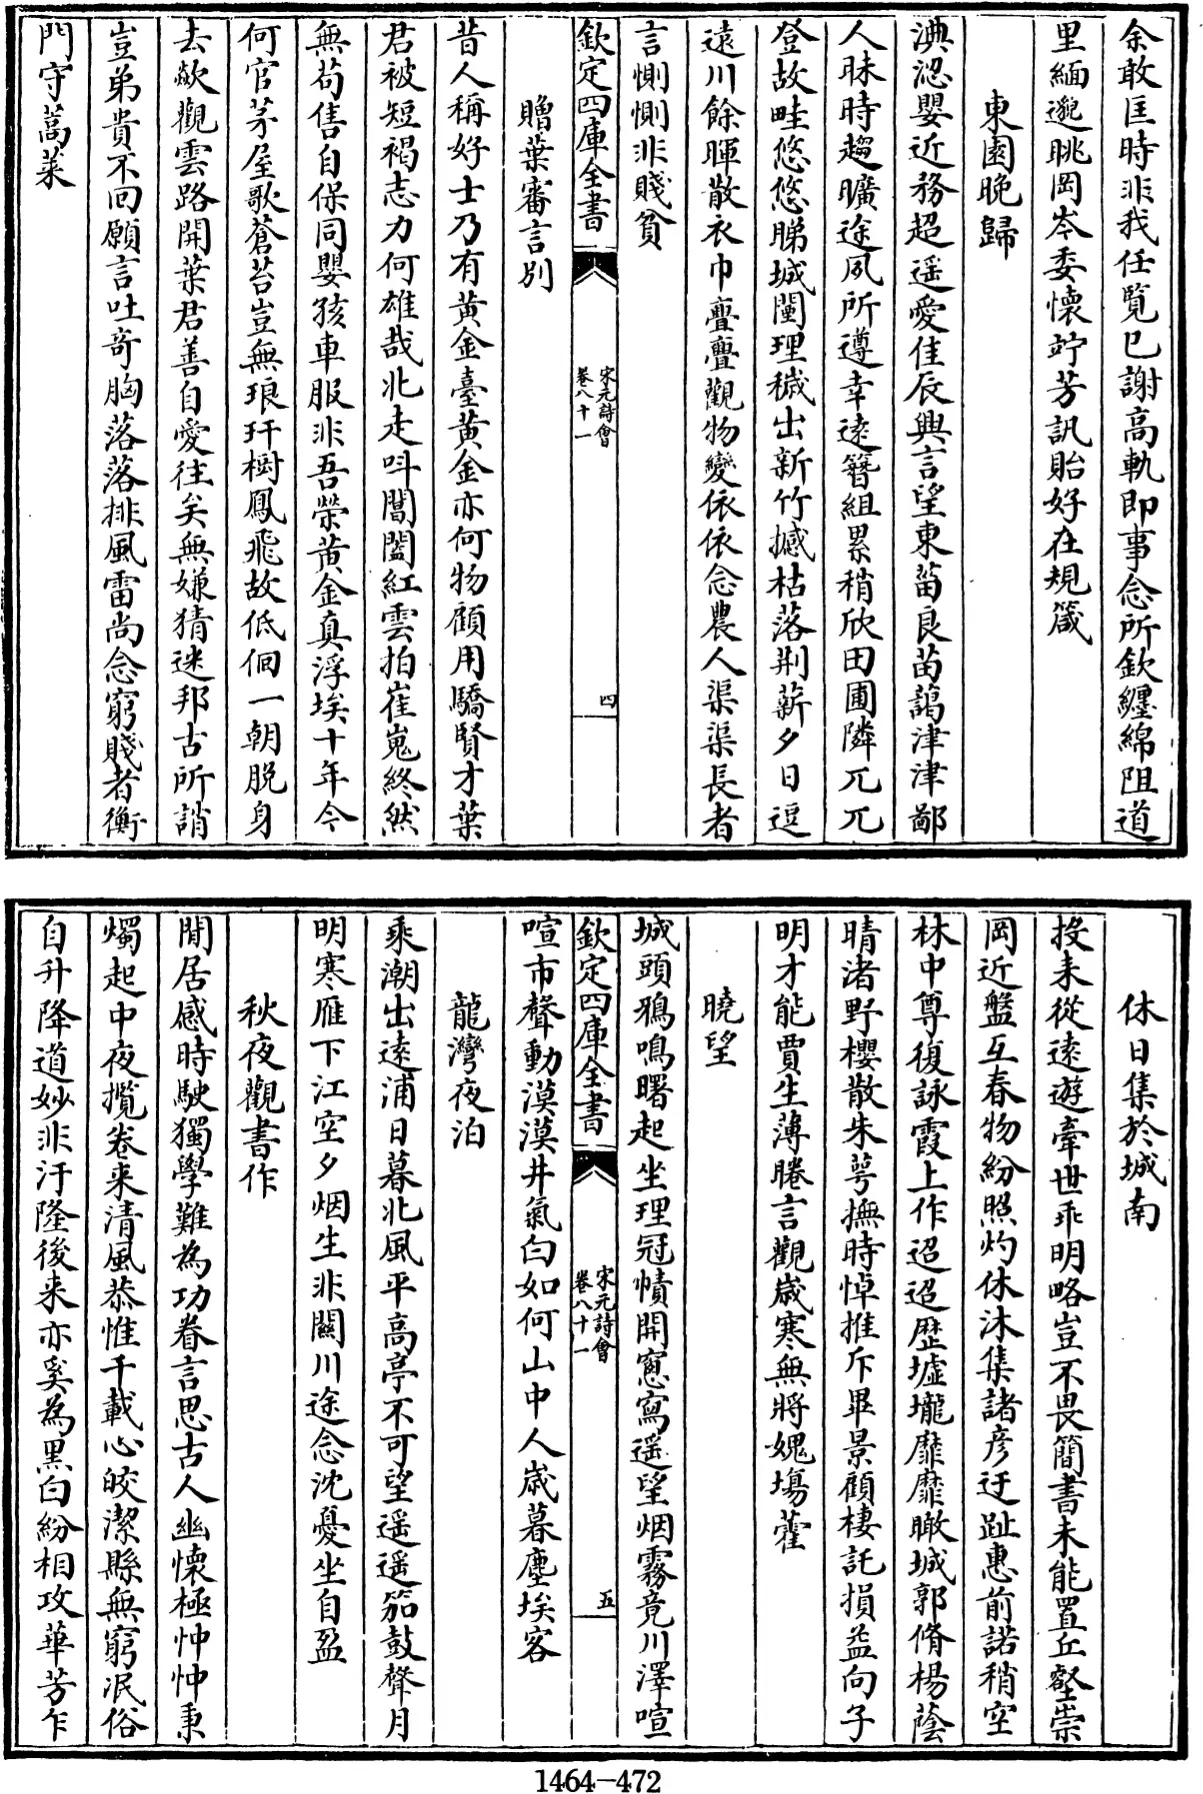 余敢匡時非我任覽已謝高軌即事念所欽纏綿阻道
里緬邈眺岡岑委懷竚芳訊貽好在規箴
東園晚歸
淟涊嬰近務超遥愛佳辰興言望東菑良苗藹津津鄙
人昧時趨曠途夙所遵幸逺簪組累稍欣田圃隣兀兀
登故畦悠悠睇城闉理穢出新竹撼枯落荆薪夕日逗
遠川餘暉散衣巾亹亹觀物變依依念農人渠渠長者
言惻惻非賤貧
欽定四庫全書
宋元詩會
卷八十一
四
贈葉審言別
昔人稱好士乃有黄金臺黄金亦何物顧用驕賢才葉
君被短褐志力何雄哉北走呌閶闔紅雲拍崔嵬終然
無茍售自保同嬰孩車服非吾榮黄金真浮埃十年今
何官茅屋歌蒼苔豈無琅玕樹鳳飛故低佪一朝脱身
去歘觀雲路開葉君善自愛往矣無嫌猜迷邦古所誚
豈弟貴不回願言吐竒胸落落排風雷尚念窮賤者衡
門守蒿萊
休日集於城南
投耒從遠遊牽世乖明略豈不畏簡書未能置丘壑崇
岡近盤互春物紛照灼休沐集諸彦迂趾惠前諾稍空
林中尊復詠霞上作迢迢歴墟壠靡靡瞰城郭脩楊蔭
晴渚野櫻散朱萼撫時悼推斥畢景顧棲託損益向子
明才能賈生薄睠言觀嵗寒無將媿塲藿
曉望
城頭鴉鳴曙起坐理冠幘開窓寫遥望烟霧竟川澤喧
欽定四庫全書
宋元詩會
卷八十一
五
喧市聲動漠漠井氣白如何山中人嵗暮塵埃客
龍灣夜泊
乘潮出遠浦日暮北風平高亭不可望遥遥笳鼓聲月
明寒雁下江空夕烟生非闗川途念沈憂坐自盈
秋夜觀書作
閒居感時駛獨學難為功眷言思古人幽懷極忡忡秉
燭起中夜攬卷来清風恭惟千載心皎潔縣無窮泯俗
自升降道妙非汙隆後来亦奚為黒白紛相攻華芳乍
1464-472